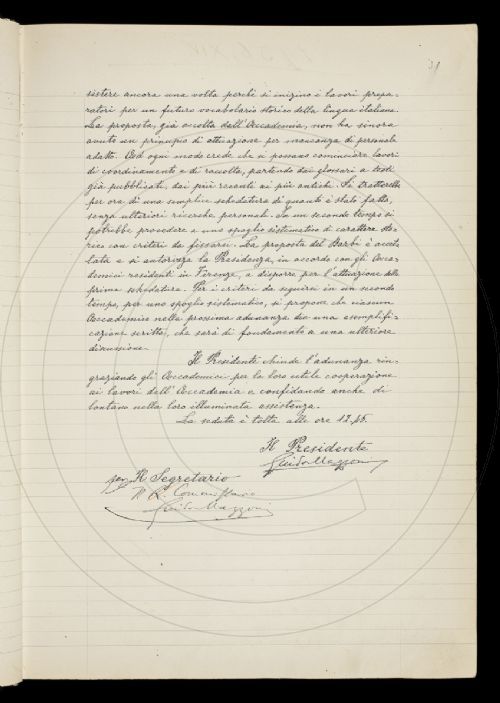 31
sistere ancora una volta perchè si inizino i lavori prepa-
ratori per un futuro vocabolario storico della lingua italiana.
La proposta, già accolta dall'Accademia, non ha sinora
avuto un principio di attuazione per mancanza di personale
adatto. Ad ogni modo crede che si possano cominciare lavori
di coordinamento e di raccolta, partendo dai glossari a testi
già pubblicati, dai più recenti ai più antichi. Si tratterebbe
per ora di una semplice schedatura di quanto è stato fatto,
senza ulteriori ricerche personali. In un secondo tempo si
potrebbe procedere a uno spoglio sistematico di carattere sto-
rico con criteri da fissarsi. La proposta del Barbi è accet-
tata e si autorizza la Presidenza, in accordo con gli Acca-
demici residenti in Firenze, a disporre per l'attuazione della
prima schedatura. Per i criteri da seguirsi in un secondo
tempo, per uno spoglio sistematico, si propone che ciascun
Accademico nella prossima adunanza dia una esemplifi-
cazione scritta, che sarà di fondamento a una ulteriore
discussione.
Il Presidente chiude l'adunanza rin-
graziando gli Accademici per la loro utile cooperazione
ai lavori dell'Accademia e confidando anche di
lontano nella loro illuminata assistenza.
La seduta è tolta alle ore 12,45.
Il Presidente
Guido Mazzoni
per Il Segretario
Guido Mazzoni